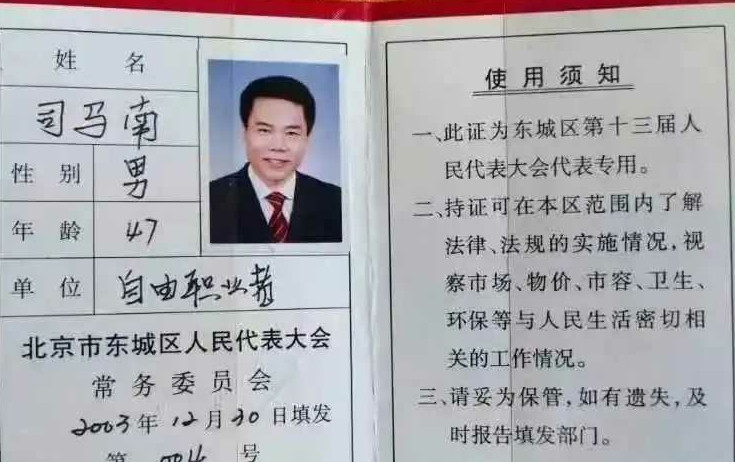 姓 名
司马南
性 别
男
年 龄
47
单 位
自由职业者
北京市东城区人民代表大会
常 务 委 员 会
2003年12月30日填发
第 号
使 用 须 知
一、此证为东城区第十三届人
民代表大会代表专用。
二、持证可在本区范围内了解
法律、法规的实施情况,视
察市场、物价、市容、卫生、
环保等与人民生活密切相
关的工作情况。
三、请妥为保管,如有遗失,及
时报告填发部门。